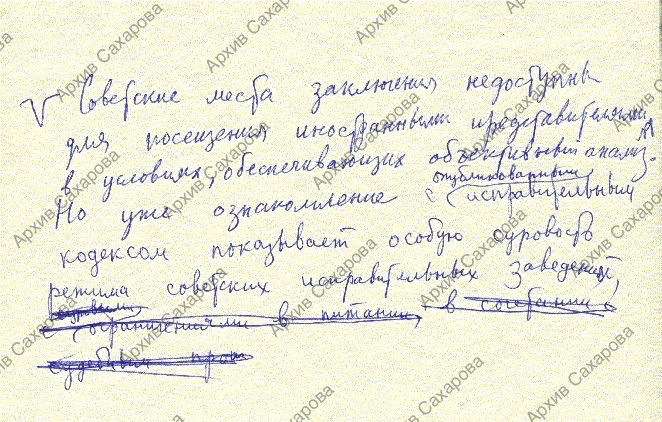 V Советские места заключения недоступны
для посещения иностранными представителями
в условиях, обеспечивающих объективный анализ.
опубликованным
Но уже ознакомление с исправительным
кодексом показывает особую суровость
режима советских исправительных заведений,
с ограничениями в питании, в сочетании с
судебным
Архив Сахарова